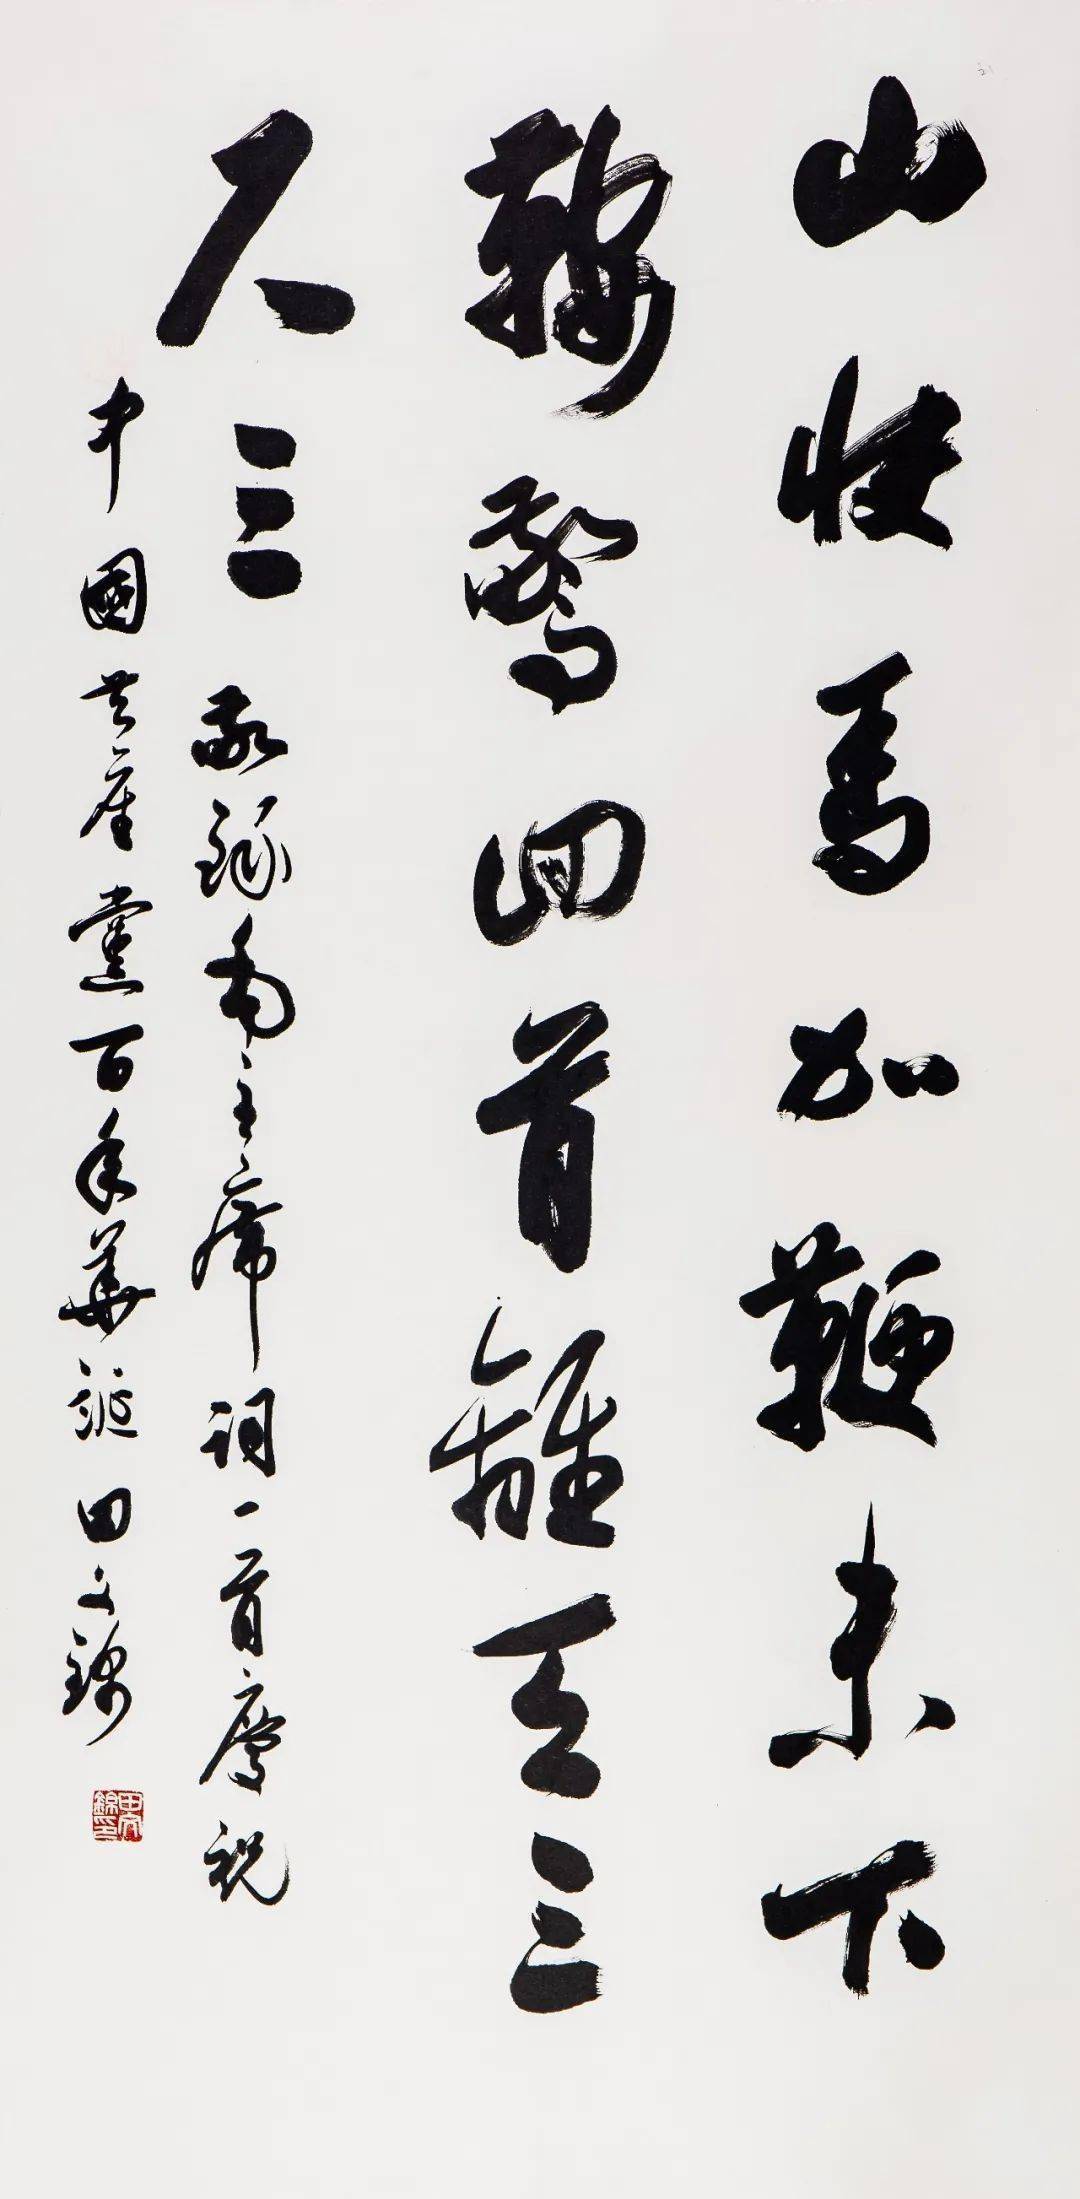 山快馬加鞭未下
鞍驚回首離天三
尺三
敬錄毛主席詞一首慶祝
中國共產黨百年華誕 田文錦
田文錦印